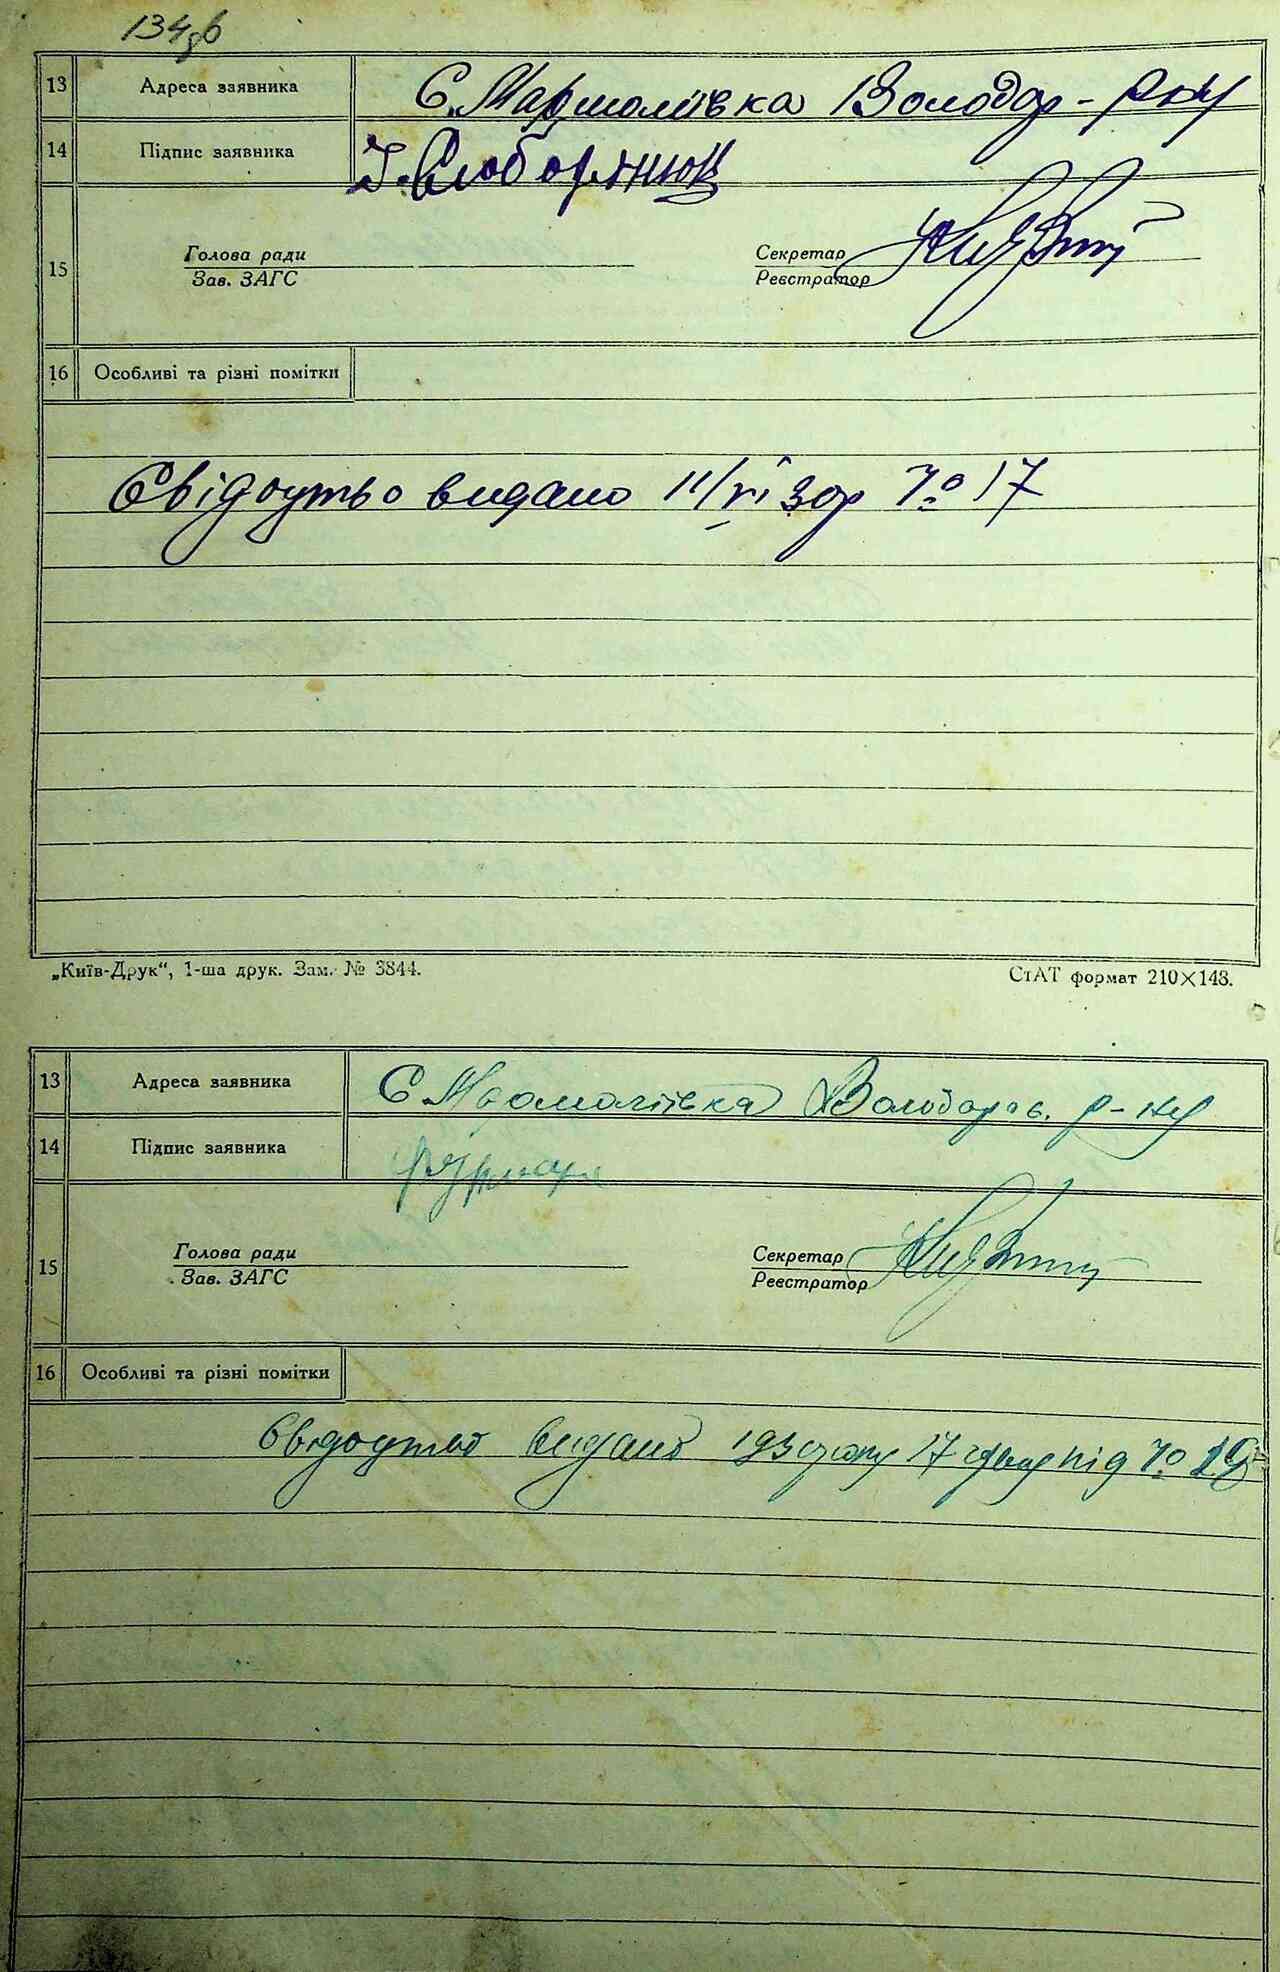 134зв
13 Адреса заявника С. Мармоліївка Володар - р-ну
14 Підпис заявника І. Слободянюк
15 Голова ради Секретар
Зав. ЗАГС Реєстратор
16 Особливі та різні помітки
Свідоцтво видано 11/VI 30р № 17
„Київ-Друк“, 1-ша друк. Зам. № 3844. СтАТ формат 210×148.
13 Адреса заявника С Мармоліївка Володарс. р-ну
14 Підпис заявника
15 Голова ради Секретар
Зав. ЗАГС Реєстратор
16 Особливі та різні помітки
Свідоцтво видано 193 року 17 під № 19